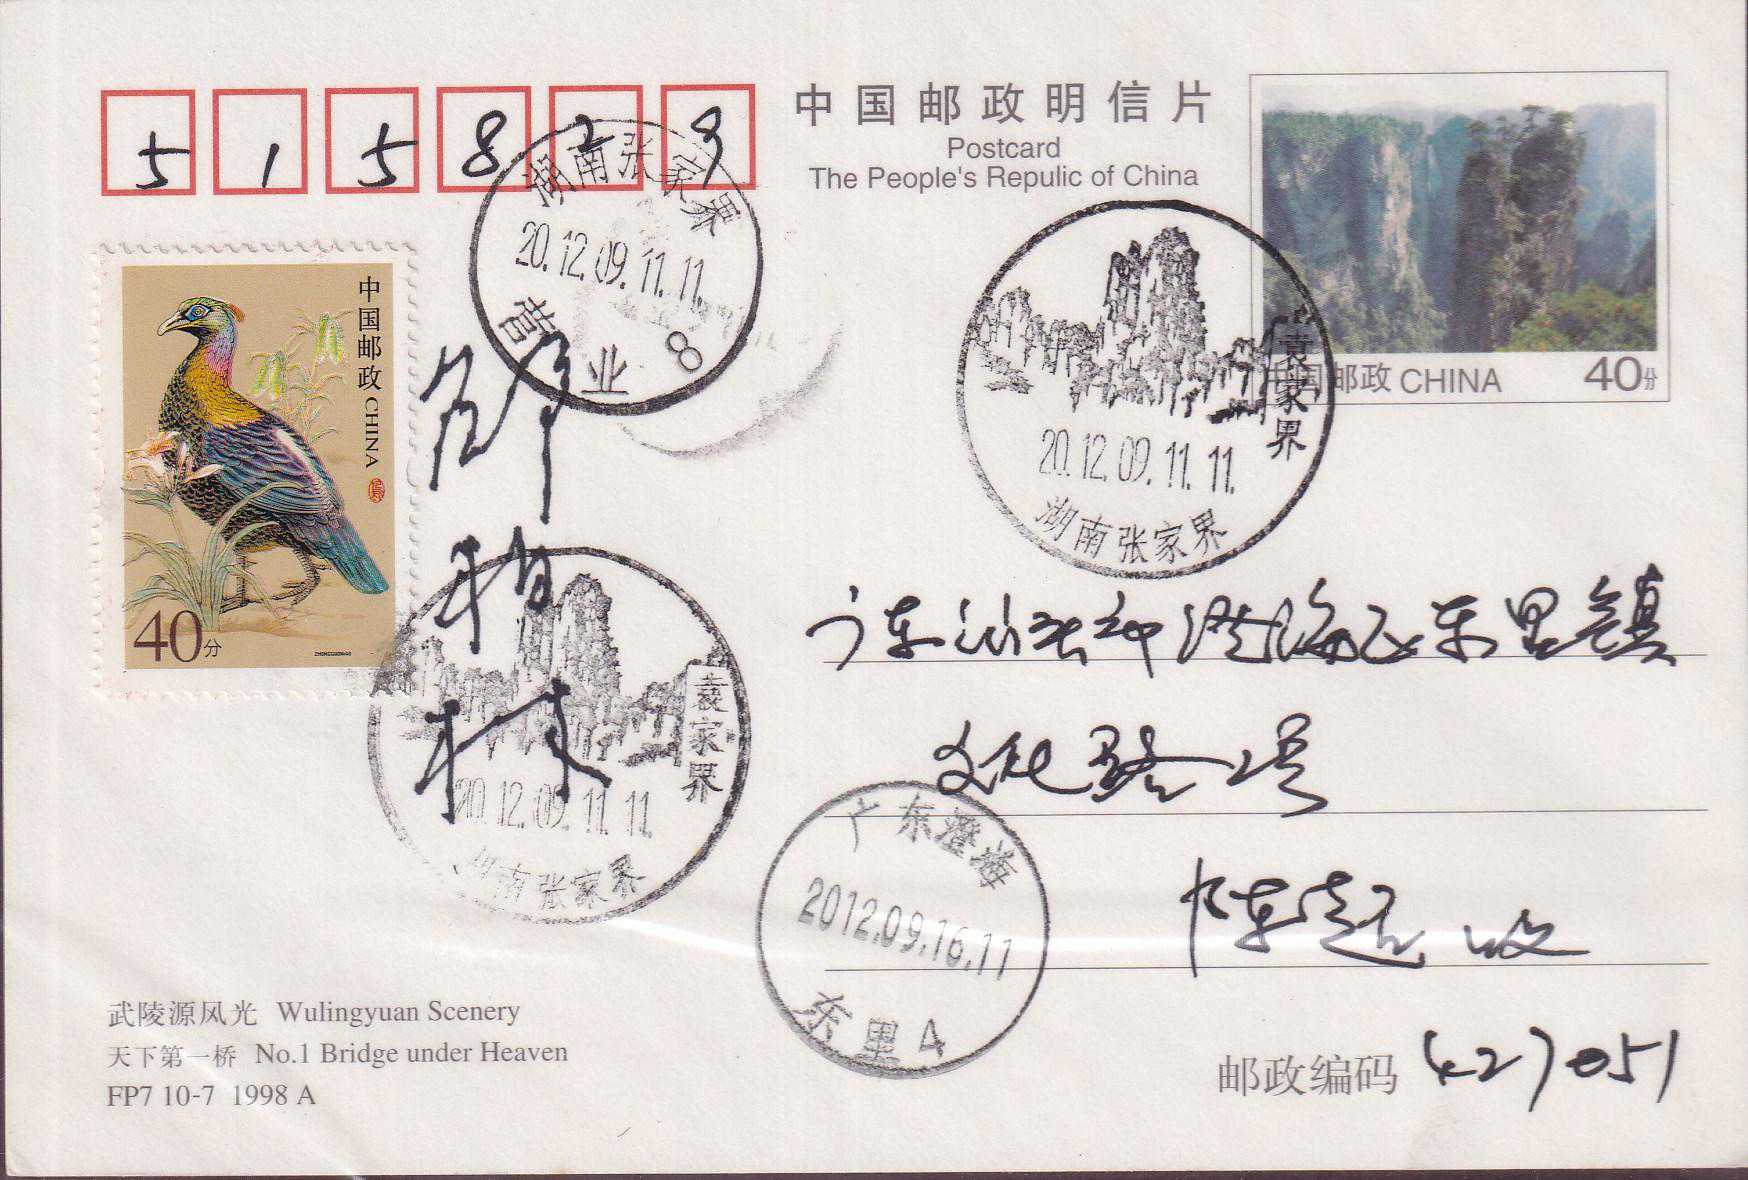 515829
中国邮政明信片
Postcard
The People's Repulic of China
中国邮政 CHINA 40分
中国邮政 CHINA
40分
湖南张家界
20.12.09.11.11.
营业 8
袁家界
20.12.09.11.11.
湖南张家界
袁家界
20.12.09.11.11.
湖南张家界
广东汕头市澄海区东里镇
文化路
陈超 收
广东澄海
2012.09.16.11
东里4
武陵源风光 Wulingyuan Scenery
天下第一桥 No.1 Bridge under Heaven
FP7 10-7 1998 A
邮政编码 427051